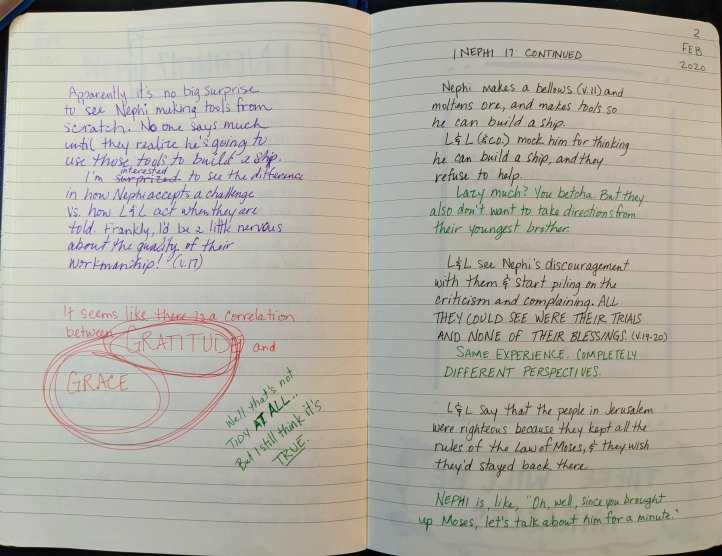 Apparently it's no big surprise
to see Nephi making tools from
scratch. No one says much
until they realize he's going to
use those tools to build a ship.
I'm surprized interested to see the difference
in how Nephi accepts a challenge
vs. how L&L act when they are
told. Frankly, I'd be a little nervous
about the quality of their
workmanship! (v.17)
It seems like there is a correlation
between GRATITUDE and
GRACE
Well that's not
TIDY AT ALL...
But I still think it's
TRUE.
2
FEB
2020
1 NEPHI 17: CONTINUED
Nephi makes a bellows (v.11) and
moltens ore, and makes tools so
he can build a ship.
L&L (& co.) mock him for thinking
he can build a ship, and they
refuse to help.
Lazy much? You betcha. But they
also don't want to take directions from
their youngest brother.
L&L see Nephi's discouragement
with them & start piling on the
criticism and complaining. ALL
THEY COULD SEE WERE THEIR TRIALS
AND NONE OF THEIR BLESSINGS. (v.19-20)
SAME EXPERIENCE. COMPLETELY
DIFFERENT PERSPECTIVES.
L&L say that the people in Jerusalem
were righteous because they kept all the
rules of the Law of Moses, & they wish
they'd stayed back there.
NEPHI is, like, "Oh, well, since you brought
up Moses, let's talk about him for a minute."